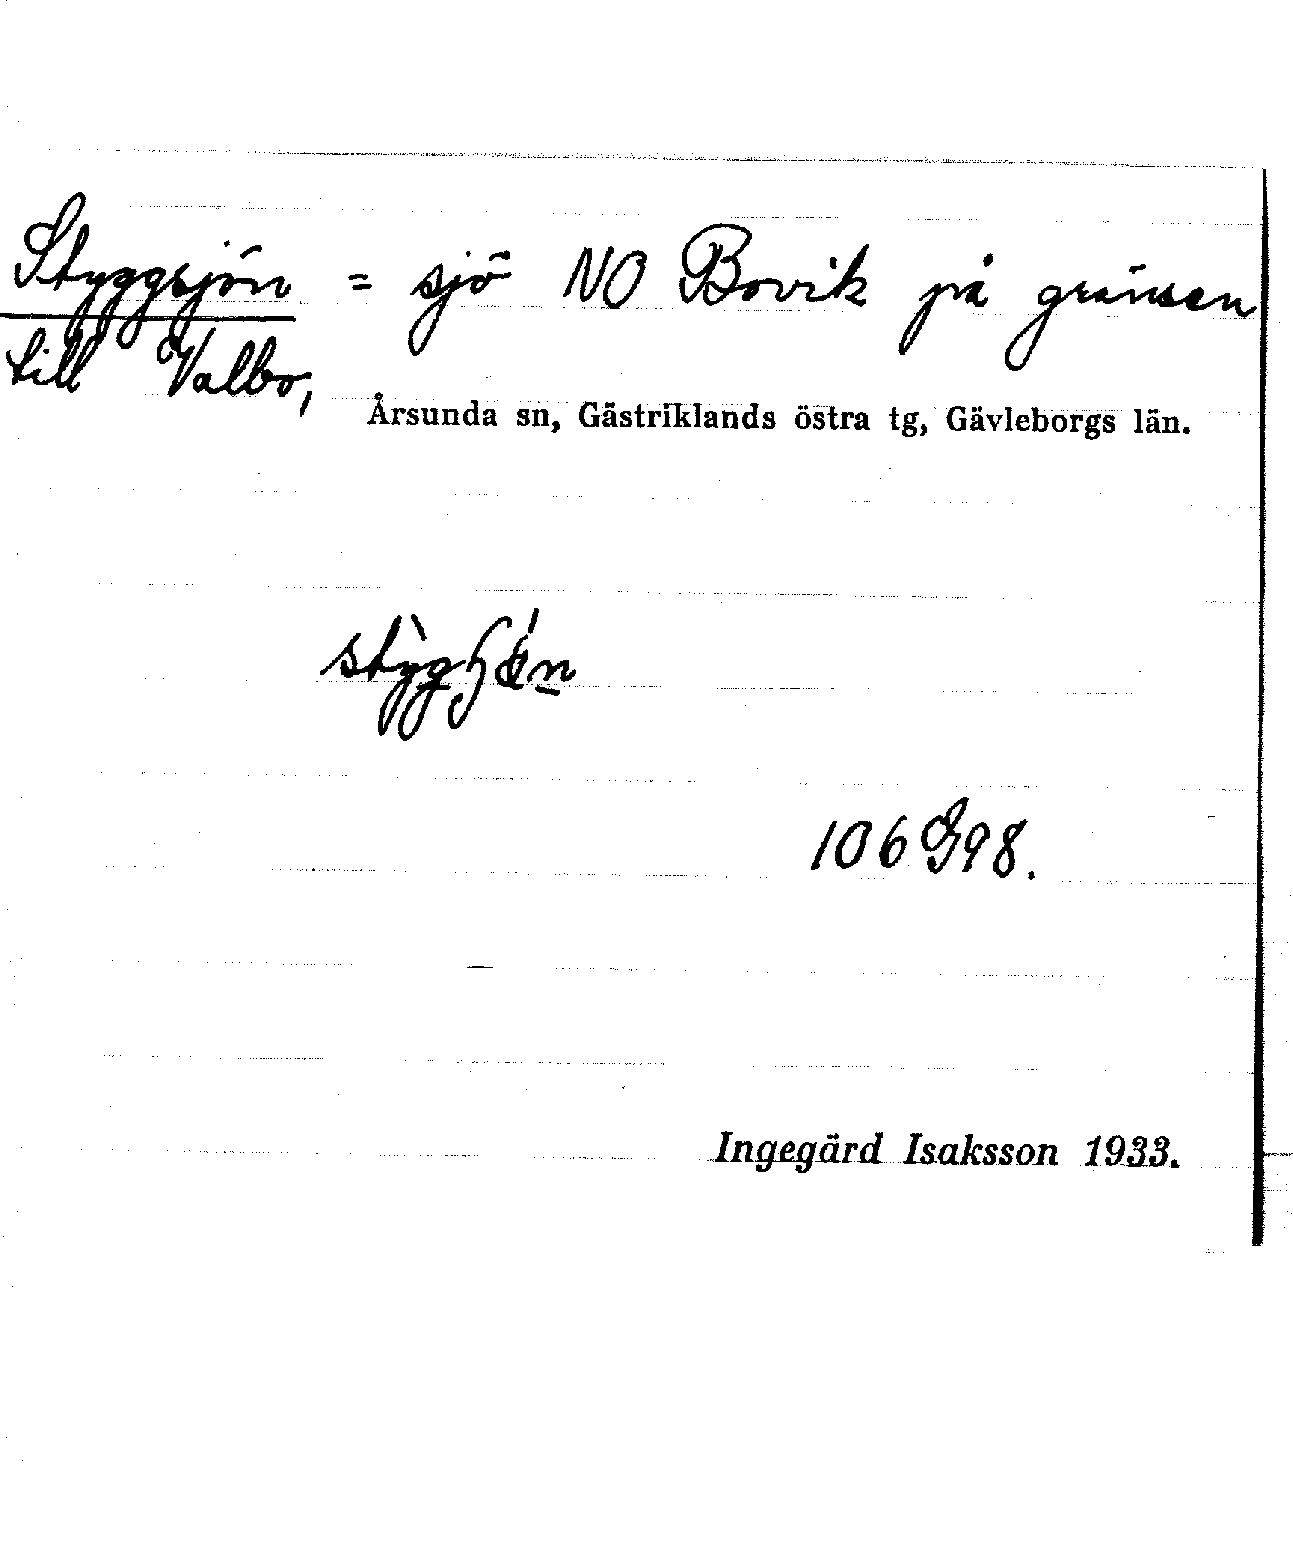 Styggsjön = sjö NO Bovik på gränsen
till Valbo,
Årsunda sn, Gästriklands östra tg, Gävleborgs län.
106 G98.
Ingegärd Isaksson 1933.